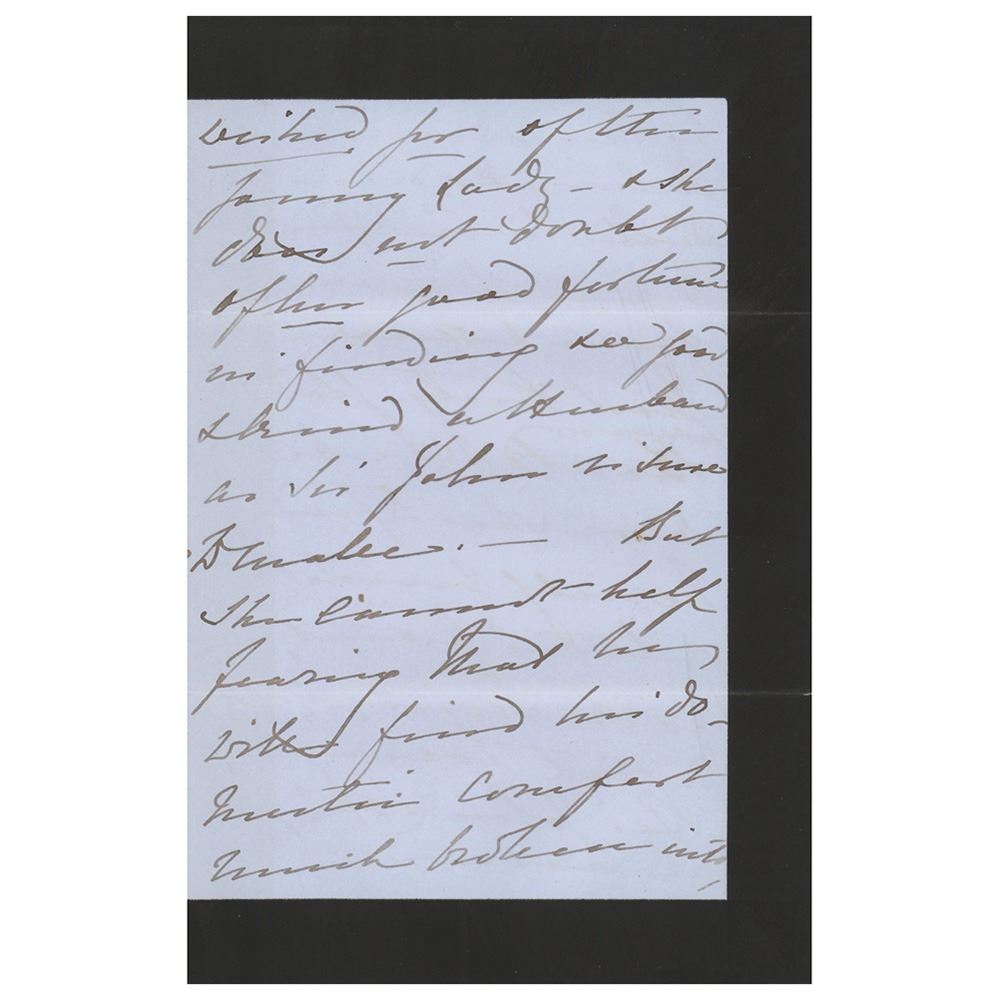 wished for of the
young Lady – & she
does not doubt
of her good fortune
in finding so good
& kind a Husband
as Sir John is sure
to make. – But
She cannot help
fearing that he
will find his do-
mestic comfort
much broken into,